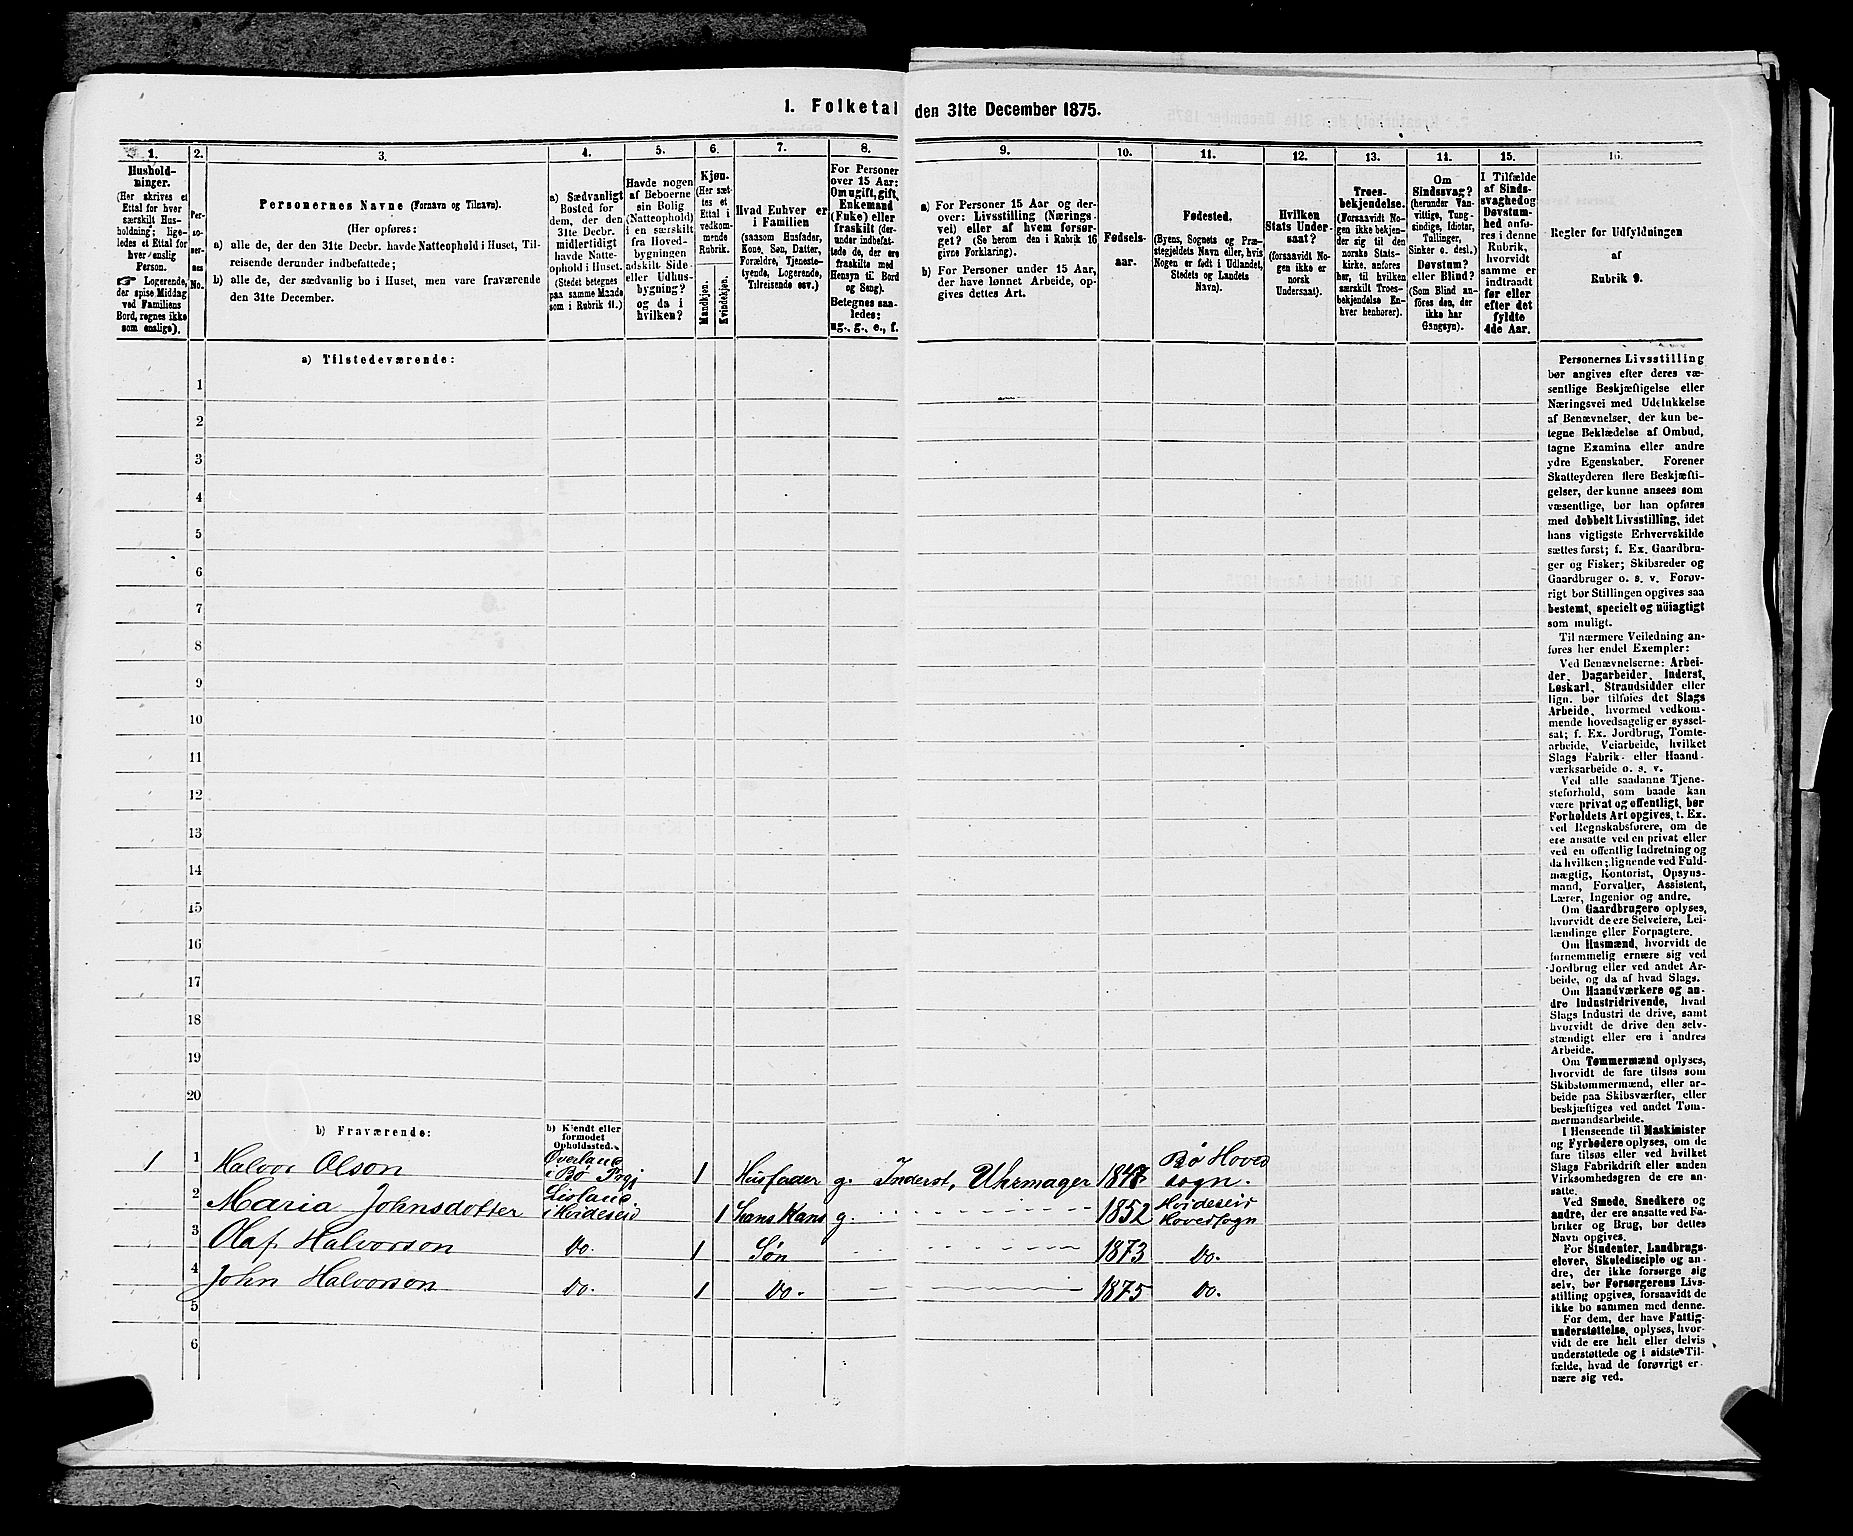 1. Folketal den 31te December 1875.
1.
Hushold-
ninger.
(Her skrives et
Ettal for hver
særskilt Hus-
holdning; lige-
ledes et Ettal for
hver enslig
Person.
☞ Logerende,
der spise Middag
ved Familiens
Bord, regnes ikke
som enslige).
2.
Per-
so-
ner-
nes
No.
3.
Personernes Navne (Fornavn og Tilnavn).
(Her opføres:
a) alle de, der den 31te Decbr. havde Natteophold i Huset, Til-
reisende derunder indbefattede;
b) alle de, der sædvanlig bo i Huset, men vare fraværende
den 31te December.
4.
a) Sædvanligt
Bosted for
dem, der den
31te Decbr.
midlertidigt
havde Natte-
ophold i Huset.
(Stedet betegnes
paa samme Maade
som i Rubrik 11.)
5.
Havde nogen
af Beboerne
sin Bolig
(Natteophold)
i en særskilt
fra Hoved-
bygningen
adskilt Side-
eller Udhus-
bygning?
og da i
hvilken?
6.
Kjøn.
(Her sæt-
tes et
Ettal i
vedkom-
mende
Rubrik.
Mandkjøn.
Kvindekjøn.
7.
Hvad Enhver er
i Familien
(saasom Husfader,
Kone, Søn, Datter,
Forældre, Tjeneste-
tyende, Logerende,
Tilreisende osv.)
8.
For Personer
over 15 Aar:
Om ugift, gift,
Enkemand
(Enke) eller
fraskilt (der-
under indbefat-
tede de, der ere
fraskilte med
Hensyn til Bord
og Seng).
Betegnes saa-
ledes:
ug., g., e., f.
9.
a) For Personer 15 Aar og der-
over: Livsstilling (Nærings-
vei) eller af hvem forsør-
get? (Se herom den i Rubrik 16
givne Forklaring).
b) For Personer under 15 Aar,
der have lønnet Arbeide, op-
gives dettes Art.
10.
Fødsels-
aar.
11.
Fødested.
(Byens, Sognets og Præ-
stegjeldets Navn eller, hvis
Nogen er født i Udlandet,
Stedets og Landets
Navn).
12.
Hvilken
Stats Under-
saat?
(forsaavidt No-
gen ikke er
norsk
Undersaat).
13.
Troes-
bekjendelse.
(Forsaavidt No-
gen ikke bekjen-
der sig til den
norske Stats-
kirke, anføres
her, til hvilken
særskilt Troes-
bekjendelse En-
hver henhører).
14.
Om
Sindssvag?
(herunder Van-
vittige, Tung-
sindige, Idioter,
Tullinger,
Sinker o. desl.)
Døvstum?
eller Blind?
(Som Blind an-
føres den, der
ikke har
Gangsyn).
15.
I Tilfælde
af Sinds-
svaghed og
Døvstum-
hed anfø-
res i denne
Rubrik,
hvorvidt
samme er
indtraadt
før eller
efter det
fyldte
4de Aar.
16.
Regler for Udfyldningen
af
Rubrik 9.
a) Tilstedeværende:
1
2
3
4
5
6
7
8
9
10
11
12
13
14
15
16
17
18
19
20
b) Fraværende:
b) Kjendt eller
formodet
Opholdssted.
1 1 Halvor Olson Øverland i Bø Prgj 1 Husfader g. Inderst, Uhrmager 1847 Bø Hovedsogn.
2 Maria Johnsdotter Lisland i Hvideseid 1 hans Kone g. 1852 Hvideseid Hovedsogn
3 Olaf Halvorson Do. 1 Søn 1873 Do.
4 John Halvorson Do. 1 Do. 1875 Do.
5
6
Personernes Livsstilling
bør angives efter deres væ-
sentlige Beskjæftigelse eller
Næringsvei med Udelukkelse
af Benævnelser, der kun be-
tegne Beklædelse af Ombud,
tagne Examina eller andre
ydre Egenskaber. Forener
Skatteyderen flere Beskjæfti-
gelser, der kunne ansees som
væsentlige, bør han opføres
med dobbelt Livsstilling, idet
hans vigtigste Erhvervskilde
sættes først; f. Ex. Gaardbru-
ger og Fisker; Skibsreder og
Gaardbruger o. s. v. Forøv-
rigt bør Stillingen opgives saa
bestemt, specielt og nøiagtigt
som muligt.
Til nærmere Veiledning an-
føres her endel Exempler:
Ved Benævnelserne: Arbei-
der, Dagarbeider, Inderst,
Løskarl, Strandsidder eller
lign. bør tilføies det Slags
Arbeide, hvormed vedkom-
mende hovedsagelig er syssel-
sat; f. Ex. Jordbrug, Tomte-
arbeide, Veiarbeide, hvilket
Slags Fabrik- eller Haand-
værksarbeide o. s. v.
Ved alle saadanne Tjene-
steforhold, som baade kan
være privat og offentligt, bør
Forholdets Art opgives, t. Ex.
ved Regnskabsførere, om de
ere ansatte ved en privat eller
ved en offentlig Indretning og
da hvilken; lignende ved Fuld-
mægtig, Kontorist, Opsyns-
mand, Forvalter, Assistent,
Lærer, Ingeniør og andre.
Om Gaardbrugere oplyses,
hvorvidt de ere Selveiere, Lei-
lændinge eller Forpagtere.
Om Husmænd, hvorvidt de
fornemmelig ernære sig ved
Jordbrug eller ved andet Ar-
beide, og da af hvad Slags.
Om Haandværkere og an-
dre Industridrivende, hvad
Slags Industri de drive, samt
hvorvidt de drive den selv-
stændigt eller ere i andres
Arbeide.
Om Tømmermænd oplyses,
hvorvidt de fare tilsøs som
Skibstømmermænd, eller ar-
beide paa Skibsværfter, eller
beskjæftiges ved andet Tøm-
mermandsarbeide.
I Henseende til Maskinister
og Fyrbødere oplyses, om de
fare tilsøs eller ved hvilket
Slags Fabrikdrift eller anden
Virksomhedsgren de ere an-
satte.
Ved Smede, Snedkere og
andre, der ere ansatte ved Fa-
briker og Brug, bør dettes
Navn opgives.
For Studenter, Landbrugs-
elever, Skoledisciple og an-
dre, der ikke forsørge sig
selv, bør Forsørgerens Livs-
stilling opgives, forsaavidt de
ikke bo sammen med denne.
For dem, der have Fattig-
understøttelse, oplyses, hvor-
vidt de ere helt eller delvis
understøttede og i sidste Til-
fælde, hvad de forøvrigt er-
nære sig ved.